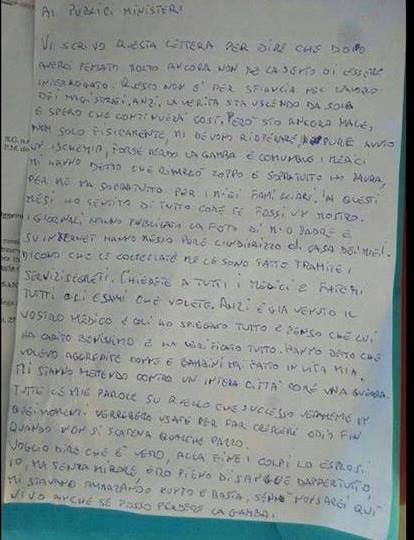 AI PUBLICI MINISTERI
VI SCRIVO QUESTA LETTERA PER DIRE CHE DOPO
AVERCI PENSATO MOLTO ANCORA NON ME LA SENTO DI ESSERE
INTERROGATO. QUESTO NON È PER SFIDUCIA NEL LAVORO
DEI MAGISTRATI, ANZI, LA VERITÀ STA USCENDO DA SOLA
E SPERO CHE CONTINUERÀ COSÌ. PERÒ STO ANCORA MALE,
NON SOLO FISICAMENTE, MI DEVONO RIOPERARE, PURE AVUTO
UN'ISCHEMIA, FORSE PERDO LA GAMBA E COMUNQUE I MEDICI
MI HANNO DETTO CHE RIMARRÒ ZOPPO E SOPRATUTTO HO PAURA,
PER ME MA SOPRATUTTO PER I MIEI FAMIGLIARI. IN QUESTI
MESI HO SENTITO DI TUTTO COME SE FOSSI UN MOSTRO.
I GIORNALI HANNO PUBLICATO LA FOTO DI MIO PADRE E
SU INTERNET HANNO MESSO PURE L'INDIRIZZO DI CASA DEI MIEI.
DICONO CHE LE COLTELLATE ME LE SONO FATTO TRAMITE I
SERVIZI SEGRETI. CHIEDETE A TUTTI I MEDICI E FATEMI
TUTTI GLI ESAMI CHE VOLETE. ANZI È GIÀ VENUTO IL
VOSTRO MEDICO E GLI HO SPIEGATO TUTTO E PENSO CHE LUI
HA CAPITO BONISSIMO E HA VERIFICATO TUTTO. HANNO DETTO CHE
VOLEVO AGGREDIRE DONNE E BAMBINI MAI FATTO IN VITA MIA.
MI STANNO METTENDO CONTRO UN INTERA CITTÀ COME UNA GUERRA.
TUTTE LE MIE PAROLE SU QUELLO CHE SUCCESSO VERAMENTE IN
QUEI MOMENTI VERREBERO USATE PER FAR CRESCERE ODIO FIN
QUANDO NON SI SCATENA QUALCHE PAZZO.
VOGLIO DIRE CHE È VERO, ALLA FINE I COLPI LO ESPLOSI
IO, MA SENZA MIRARE, ERO PIENO DI SANGUE DAPPERTUTTO,
MI STAVANO AMMAZZANDO PUNTO E BASTA, SENNÒ NON SAREI QUI
VIVO ANCHE SE POSSO PERDERE LA GAMBA.